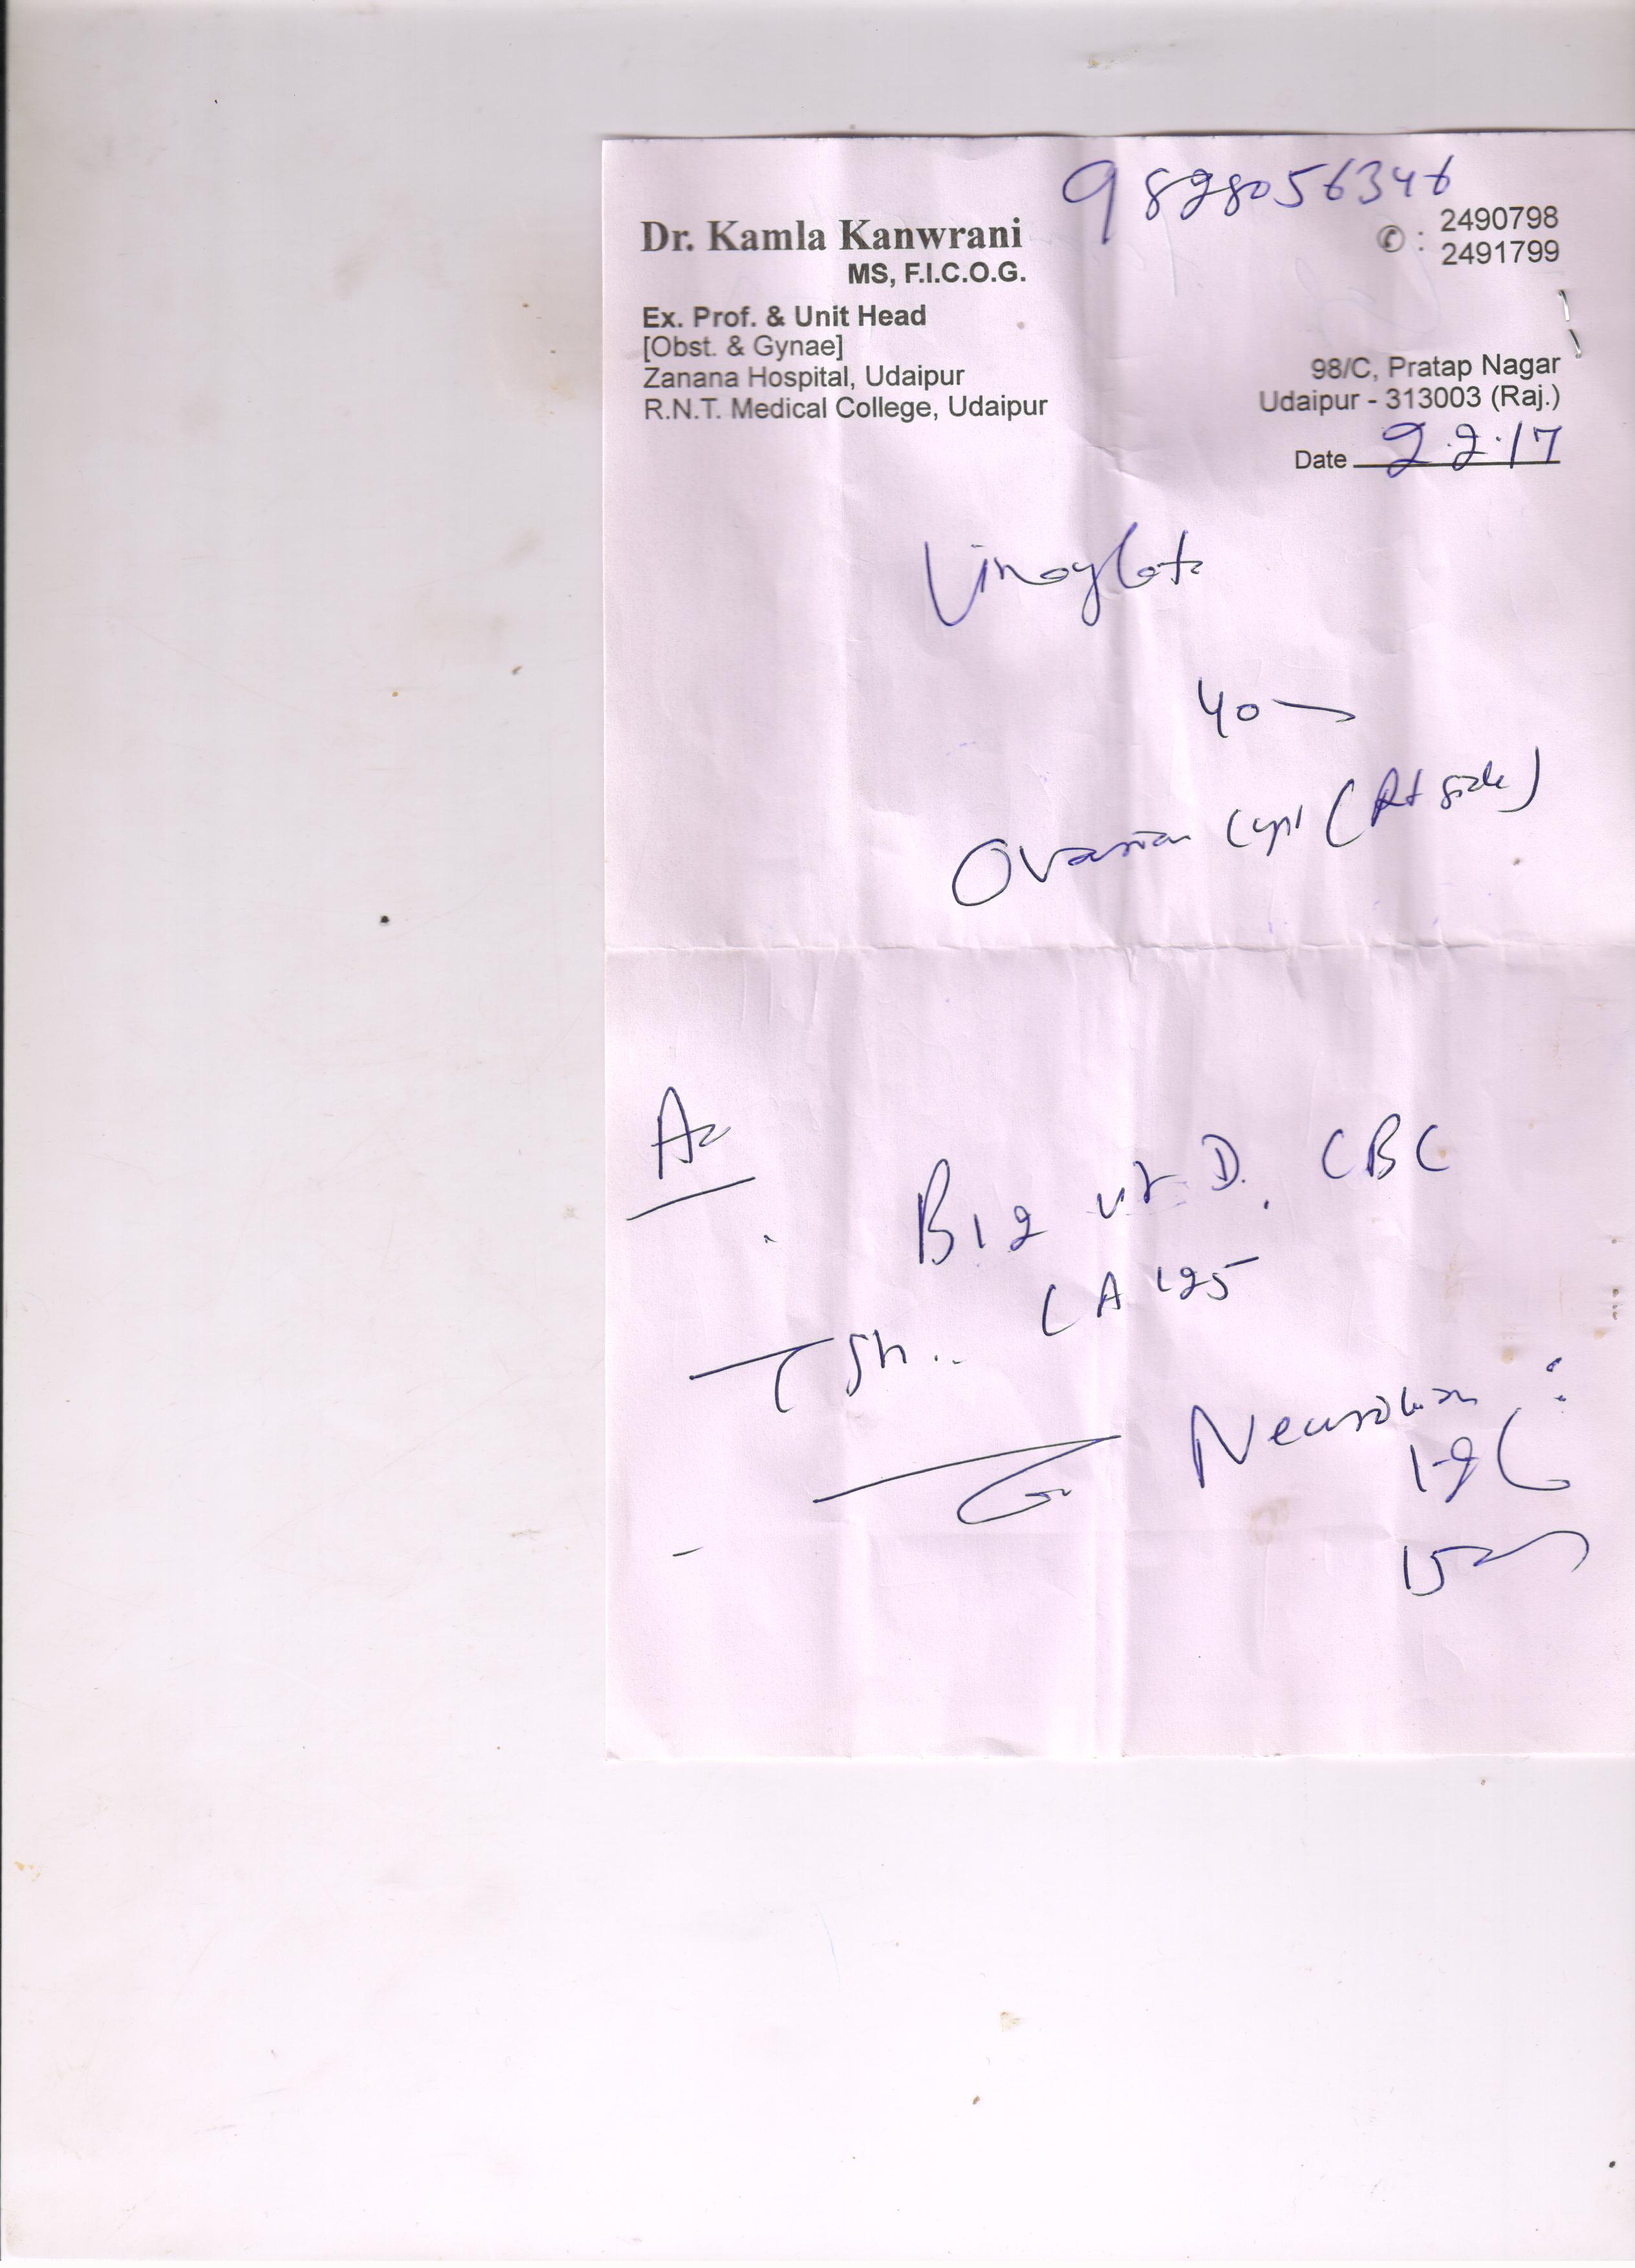 9828056346
Dr. Kamla Kanwrani
MS, F.I.C.O.G.
✆ : 2490798
2491799
Ex. Prof. & Unit Head
[Obst. & Gynae]
Zanana Hospital, Udaipur
R.N.T. Medical College, Udaipur
98/C, Pratap Nagar
Udaipur - 313003 (Raj.)
Date 2.2.17
40
Ovarian Cyst (Rt side)
B12 vit D. CBC
CA 125
TSH..
15